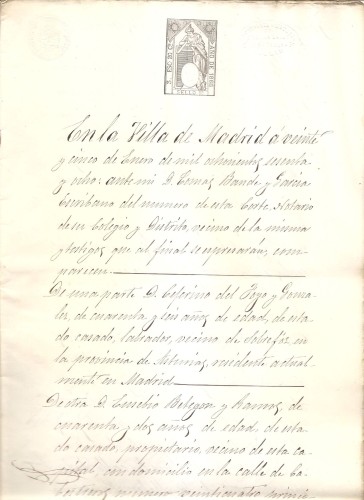 AÑO DE 1868
SELLO
En la Villa de Madrid á veinte
y cinco de Enero de mil ochocientos sesenta
y ocho: ante mi D. Tomas Bande y Garcia
Escribano del numero de esta Corte, Notario
de su Colegio y Distrito, vecino de la misma
y testigos que al final se espresarán, com-
parecen
De una parte D. Ceferino del Pozo y Gonza-
lez, de cuarenta y seis años de edad, de esta-
do casado, labrador, vecino de en
la provincia de Asturias, residente actual-
mente en Madrid
De otra D. Emilio y Ramos, de
cuarenta y dos años de edad, de esta-
do casado, propietario, vecino de esta ca-
pital, con domicilio en la calle de Ca-
numero veinticuatro